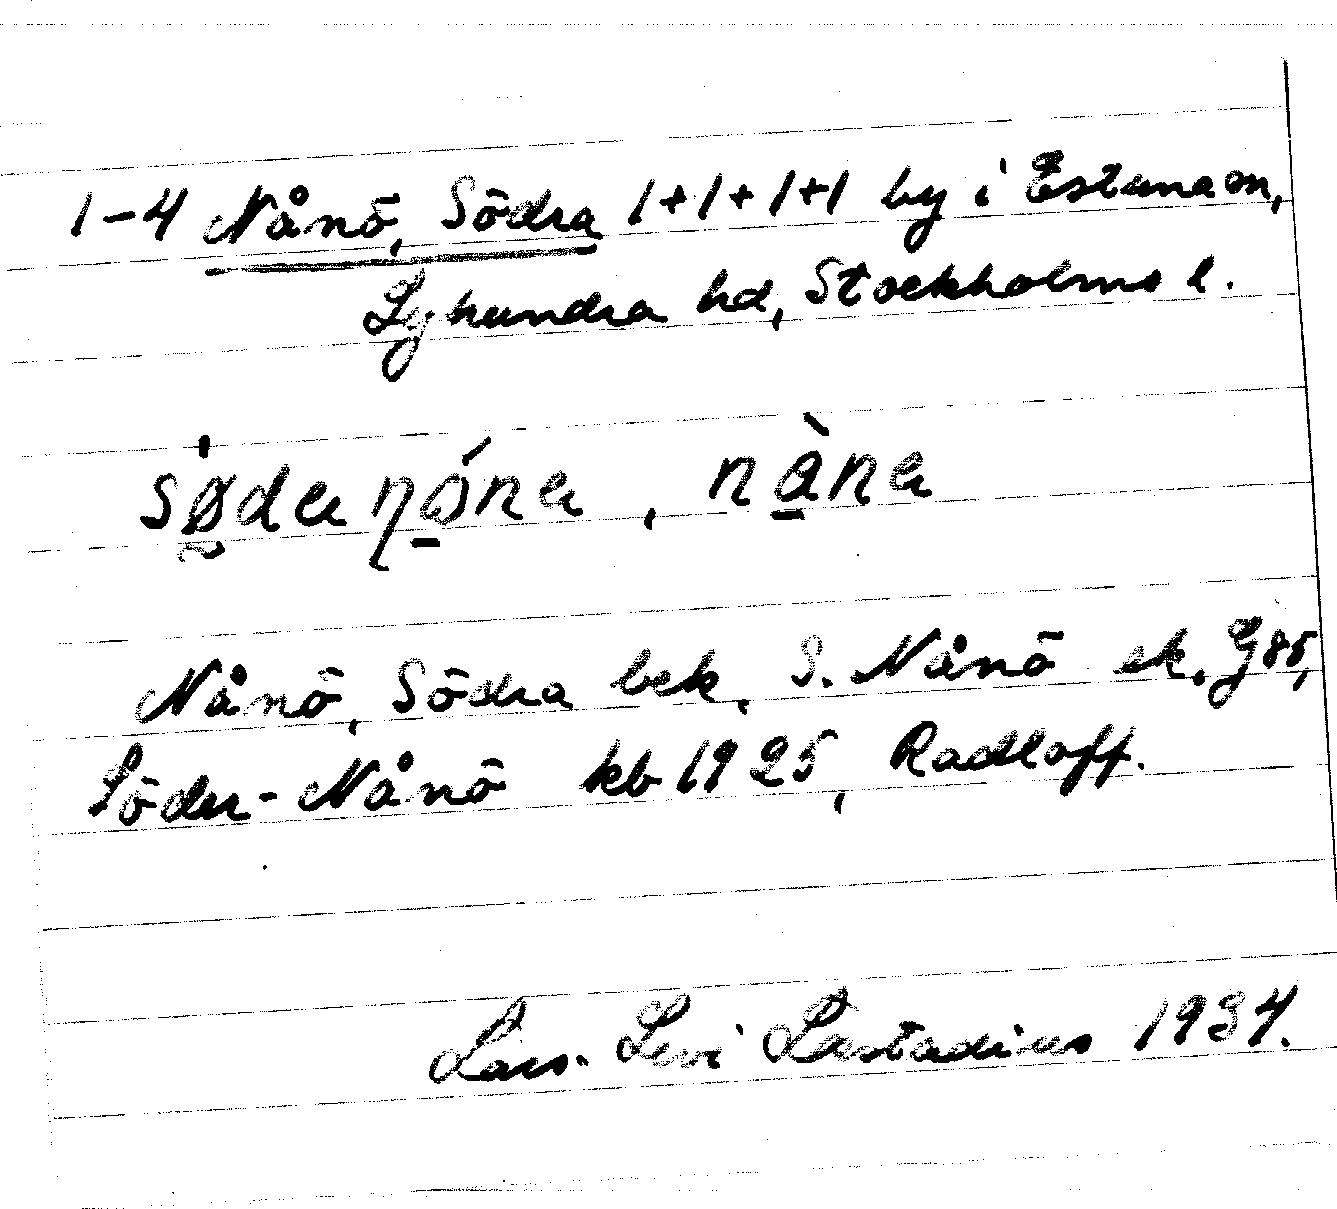 1-4 Nånö, Södra 1+1+1+1 by i Estuna sn,
Lyhundra hd, Stockholms l.
Nånö, Södra bek, S. Nånö ek. G85,
Söder-Nånö kb 1925, Radloff.
Lars-Levi Læstadius 1934.